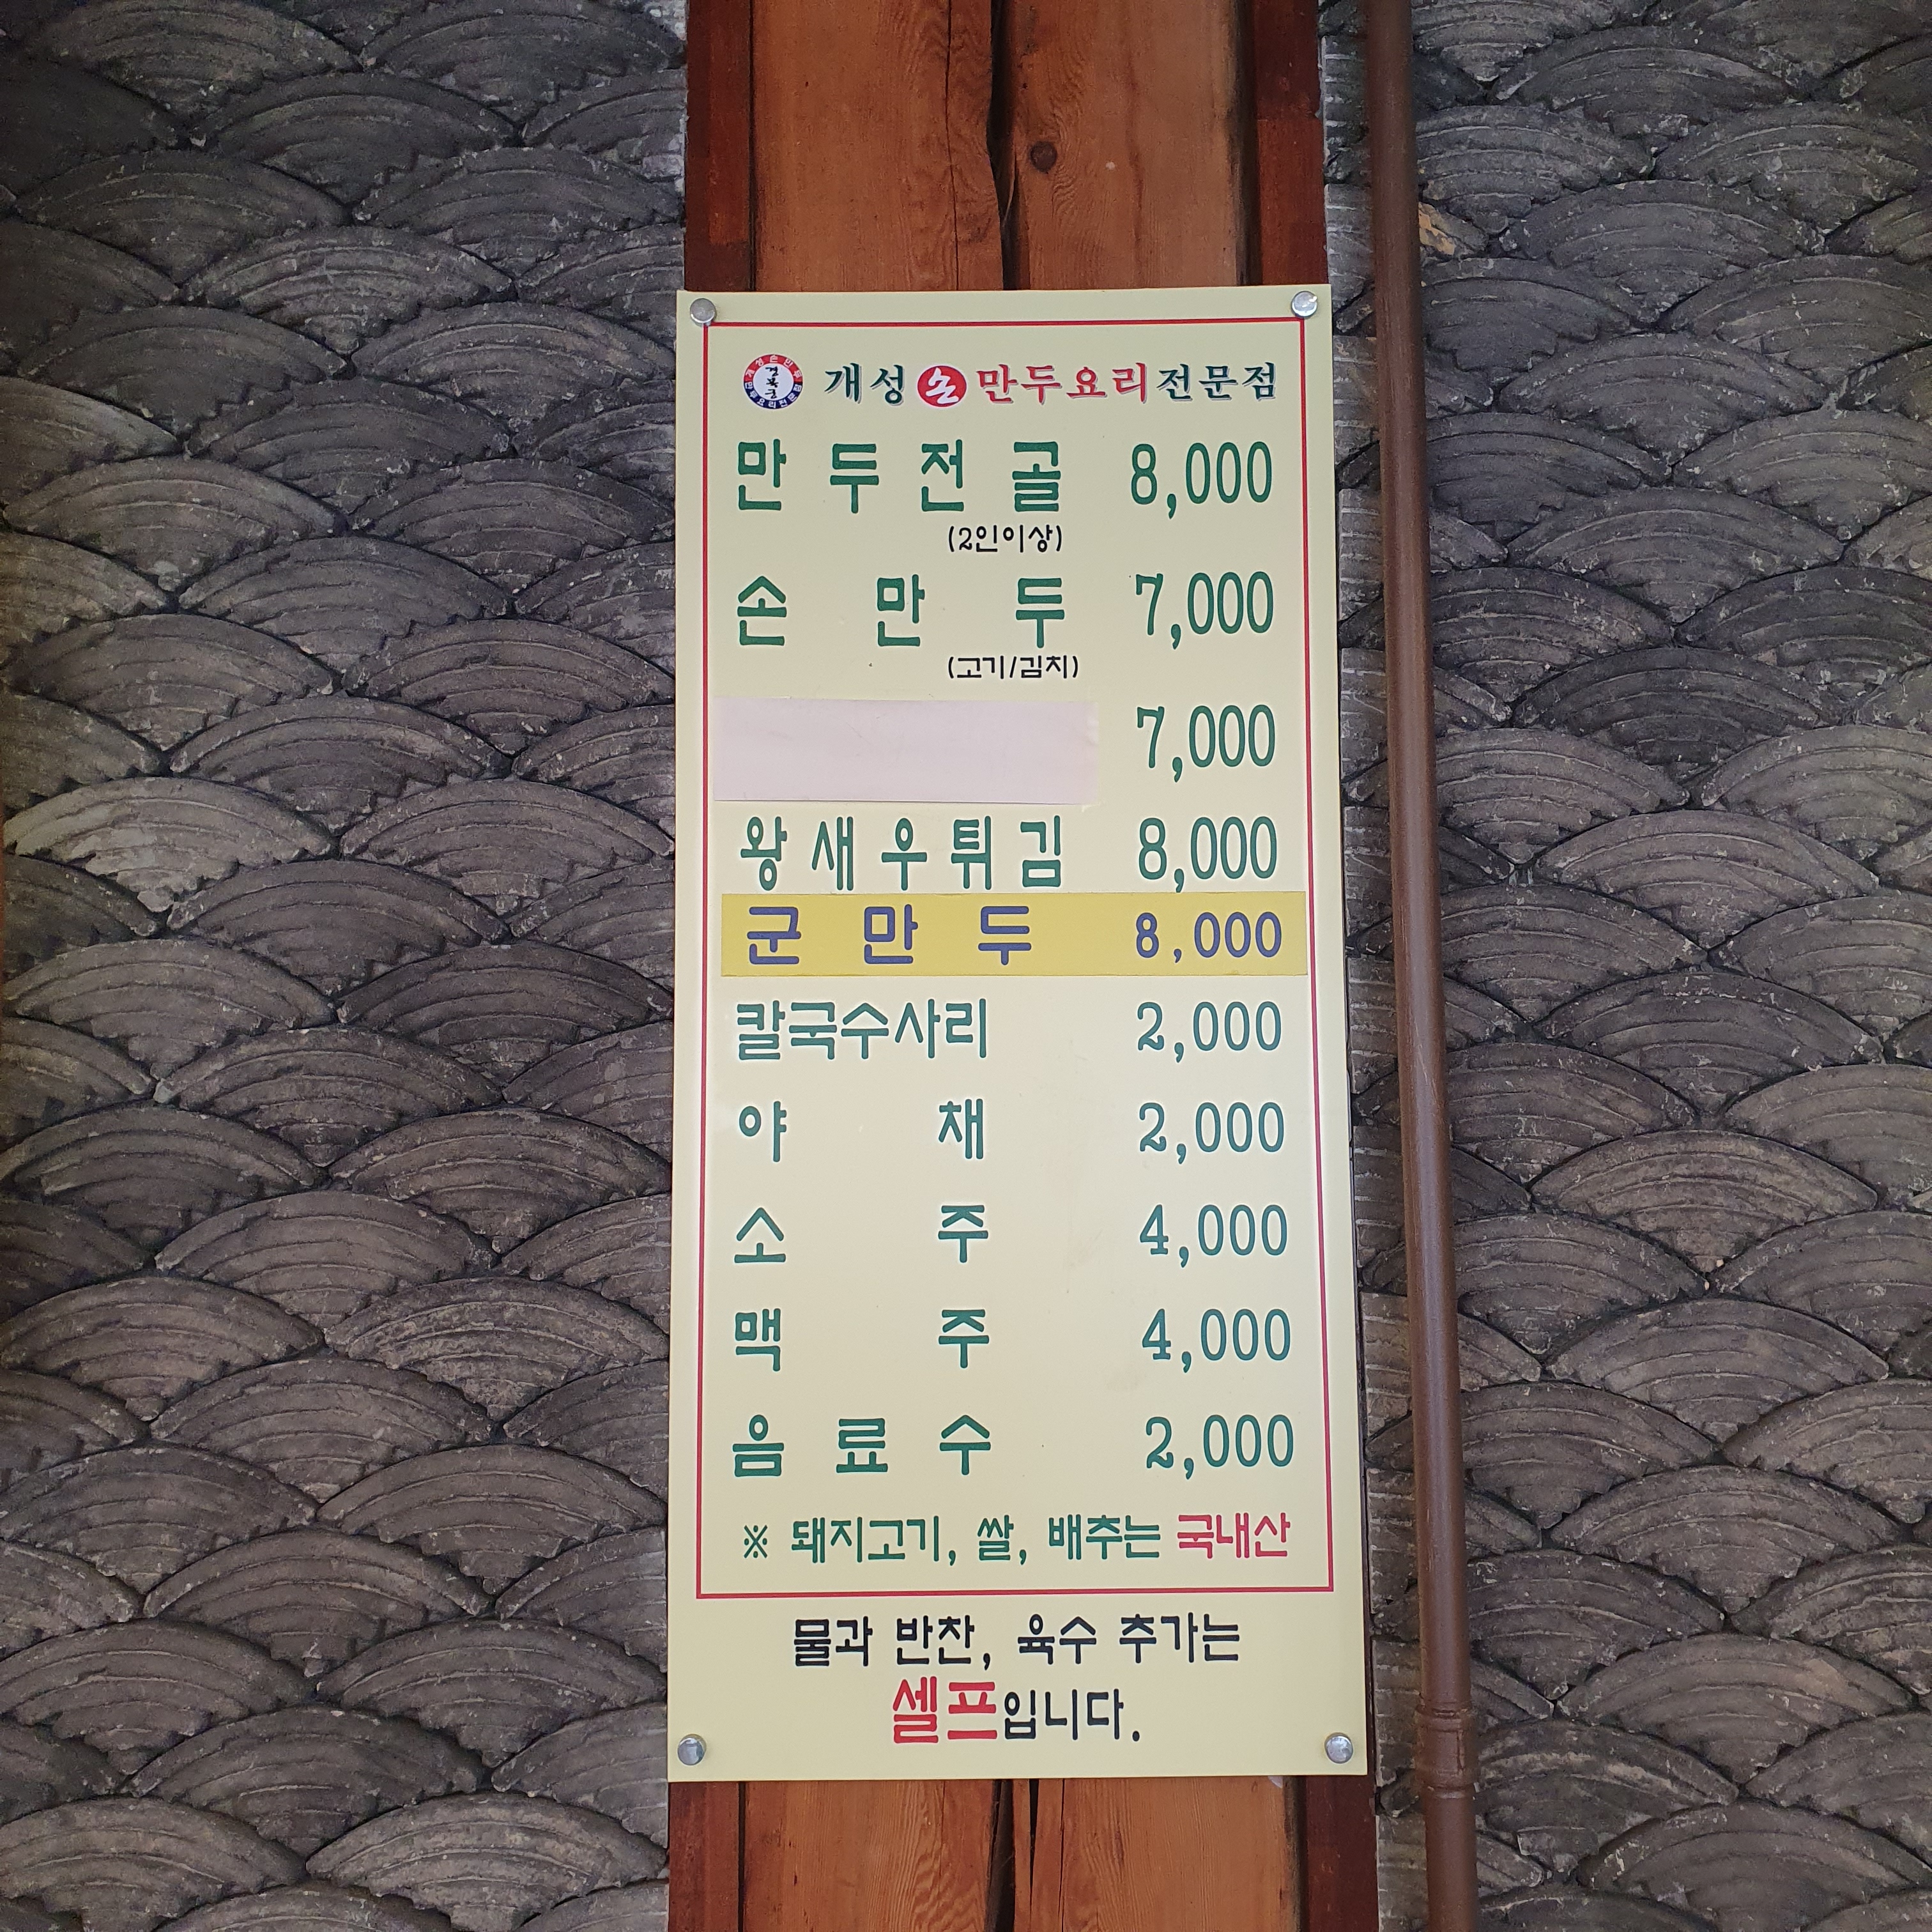 경복궁
개성 손 만두요리전문점
만두전골 8,000
(2인이상)
손만두 7,000
(고기/김치)
7,000
왕새우튀김 8,000
군만두 8,000
칼국수사리 2,000
야채 2,000
소주 4,000
맥주 4,000
음료수 2,000
※ 돼지고기, 쌀, 배추는 국내산
물과 반찬, 육수 추가는
셀프입니다.